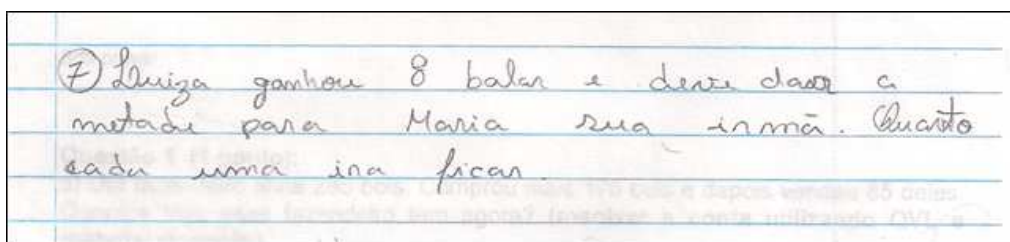 7) Luiza ganhou 8 balas e deve dar a
metade para Maria sua irmã. Quanto
cada uma ira ficar.